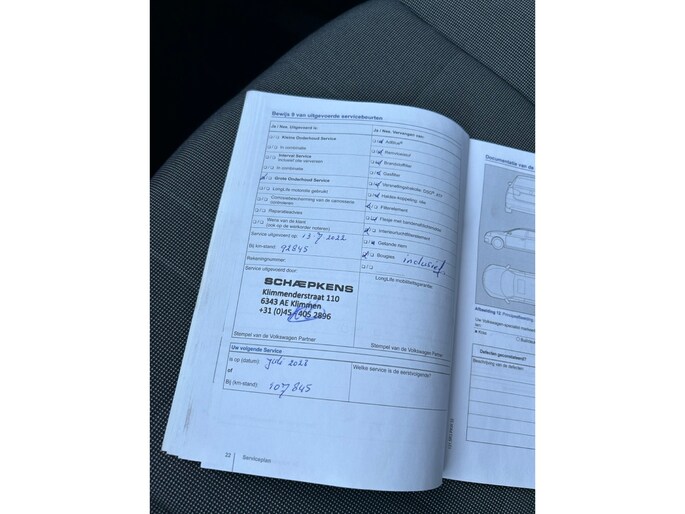 Bewijs 9 van uitgevoerde servicebeurten
Ja / Nee, Uitgevoerd is:
Kleine Onderhoud Service
In combinatie
Interval Service
inclusief olie verversen
In combinatie
Grote Onderhoud Service
LongLife motorolie gebruikt
Reparatieadvies
Wens van de klant
(ook op de werkorder noteren)
Service uitgevoerd op: 13 7 2022
Bij km-stand: 92845
Rekeningnummer:
Service uitgevoerd door:
SCHÆPKENS
Klimmenderstraat 110
6343 AE Klimmen
+31 (0)45 405 2896
Stempel van de Volkswagen Partner
Ja / Nee, Vervangen van:
AdBlue®
Brandstoffilter
Oliefilter
Filterelement
Interieurluchtfilterelement
Getande riem
Bougies inclusief
LongLife mobiliteitsgarantie:
Stempel van de Volkswagen Partner
Uw volgende Service
Is op (datum): juli 2023
of
Bij (km-stand): 107845
Welke service is de eerstvolgende?
22 Serviceplan
Documentatie van de
Afbeelding 12
Beschrijving van de defecten: